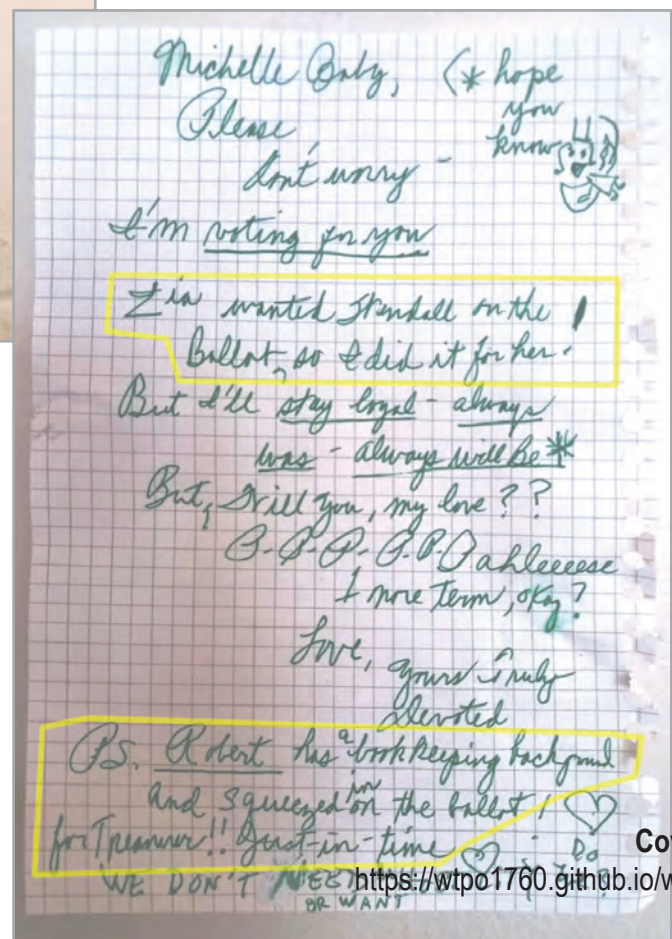 Michelle Baby, (* hope
you
know
Please,
don't worry -
I'm voting for you
wanted Kendall on the !
Ballot, so I did it for her.
But I'll stay loyal - always
was - always will be *
But, Will you, my love ??
P-P-P-P.P.
1 more term, okay?
Love,
yours Truly
Devoted
PS. Robert has a bookkeeping background
and squeezed in on the ballot!
for Treasurer!! Just-in-time
WE DON'T
OR WANT
Do
Co
https://wtpo1760.github.io/w